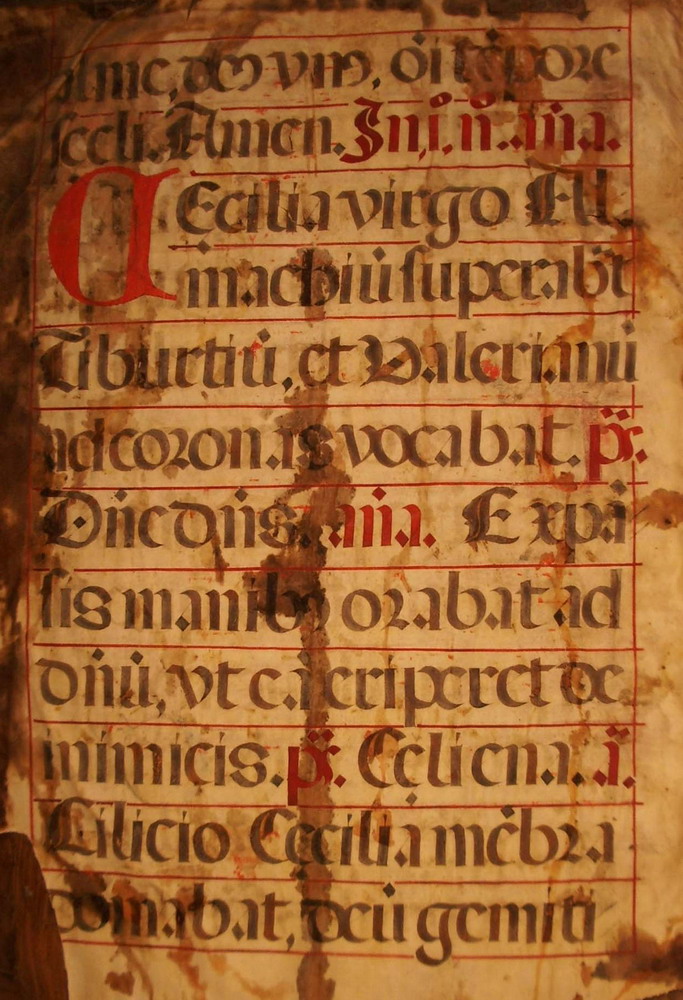 alme, deo vivo, oi tēpore
sęcli. Amen. In.i.n. aña.
CEcilia virgo All
machiū superabt
Tiburtiū, et Valerianū
ad coronas vocabat. ps.
Dñe dñs. aña. Expā
sis manibȝ orabat ad
dñū, vt eā eriperet de
inimicis. ps. Cęli ena. ā.
Cilicio Cęcilia mēbra
domabat, deū gemiti